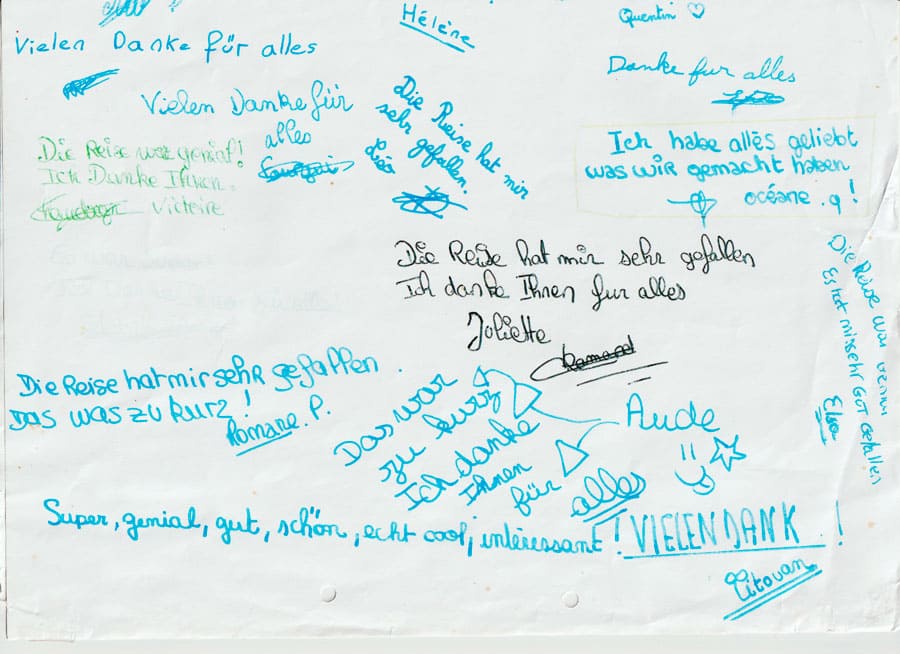 Hélène
Quentin ♡
Vielen Danke für alles
Danke fur alles
Vielen Danke für
alles
Die Reise hat mir
sehr gefallen.
Die Reise war genial!
Ich Danke Ihnen.
Victoire
Ich habe allès geliebt
was wir gemacht haben
océane .g!
Die Reise hat mir sehr gefallen
Ich danke Ihnen fur alles
Joliette
Die Reise war genial
Es hat mir sehr GUT gefallen
Elsa
Die Reise hat mir sehr gefallen.
Das was zu kurz!
Romane. P.
Das war
zu kurz
Ich danke
Ihnen
für
alles
Aude
Super, genial, gut, schön, echt cool, intéressant! VIELEN DANK !
Titouan